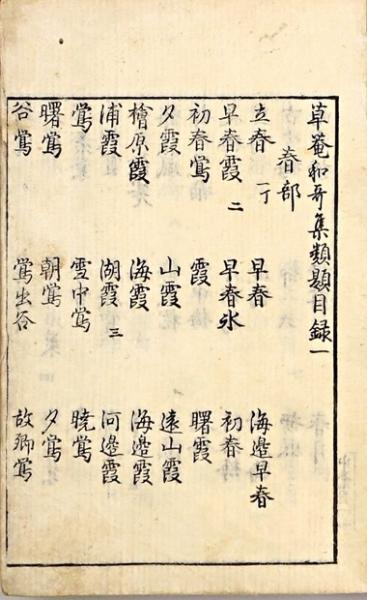 草菴和哥集類題目録一
春部
立春 一丁 早春 海邉早春
早春霞 二 早春氷 初春
初春鴬 霞 曙霞
夕霞 山霞 遠山霞
檜原霞 海霞 海邉霞
浦霞 湖霞 三 河邉霞
鴬 雪中鴬 暁鴬
曙鴬 朝鴬 夕鴬
谷鴬 鴬出谷 故郷鴬